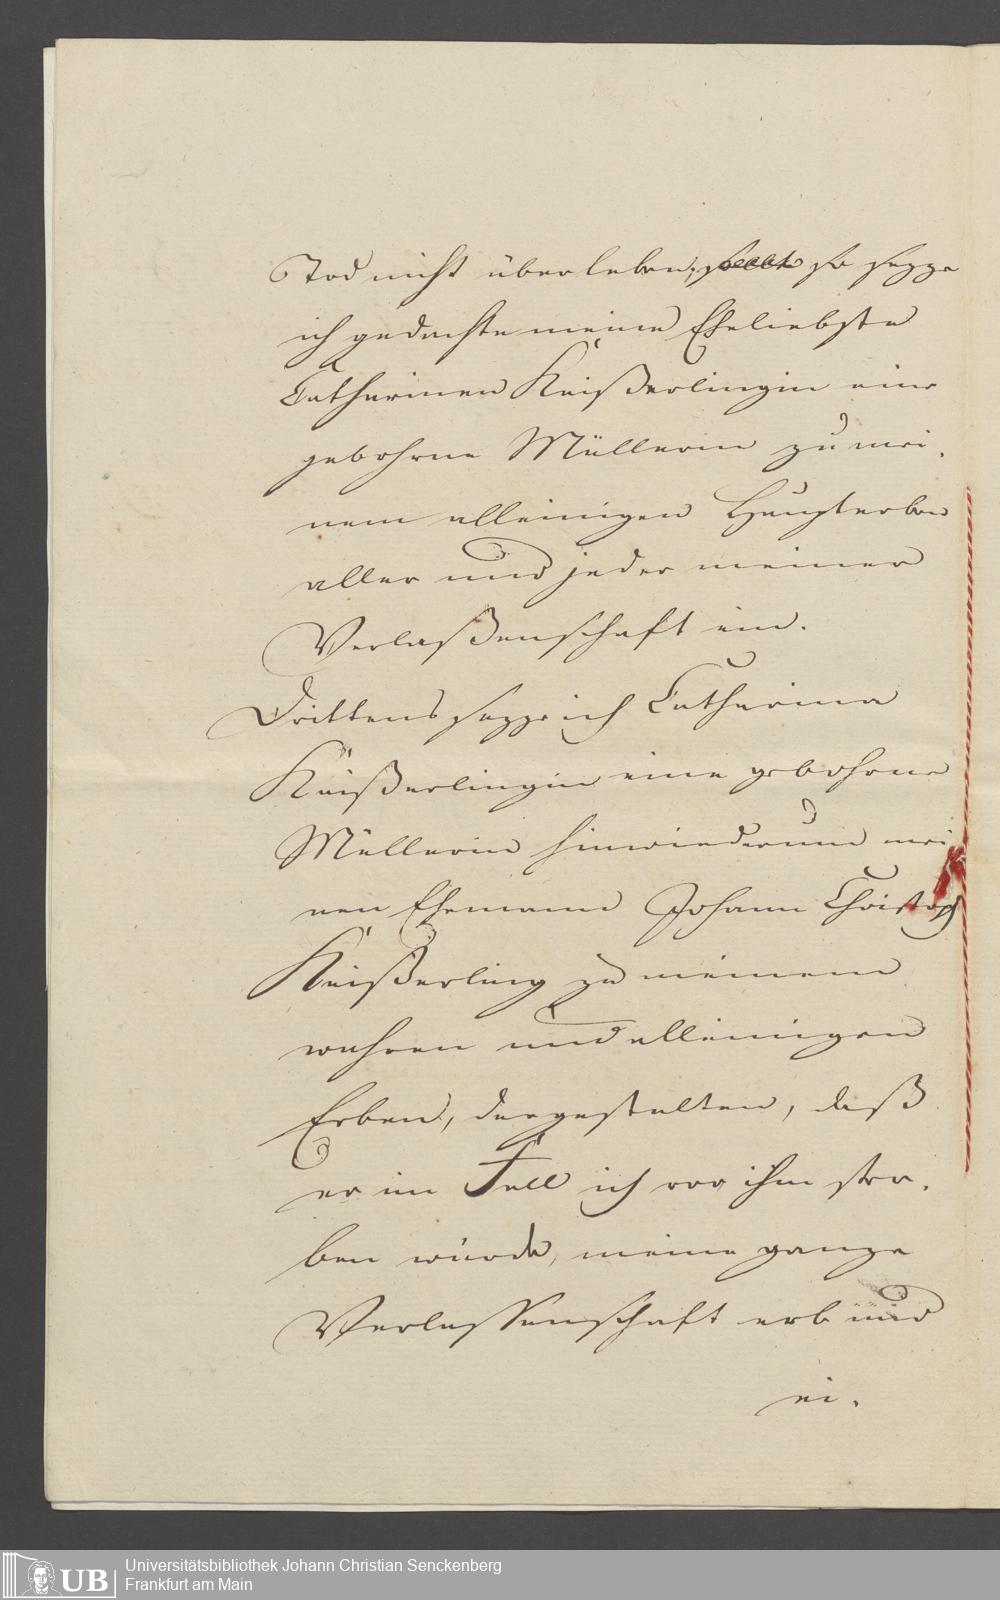 Tod nicht überleben, sollte so sezze
ich gedachte meine Eheliebste
Catharinen Keißerlingin eine
gebohrne Müllerin zu mei-
nem alleinigen Haupterben
aller und jeder meiner
Verlaßenschaft ein.
Drittens sezze ich Catharina
Keißerlingin eine gebohrne
Müllerin hinwiederum mei
nen Ehemann Johann Christoph
Keißerling zu meinem
wahren und alleinigen
Erben, dergestalten, daß
er im Fall ich vor ihm ster-
ben würde, meine ganze
Verlassenschaft erb und
ei-
UB Universitätsbibliothek Johann Christian Senckenberg
Frankfurt am Main